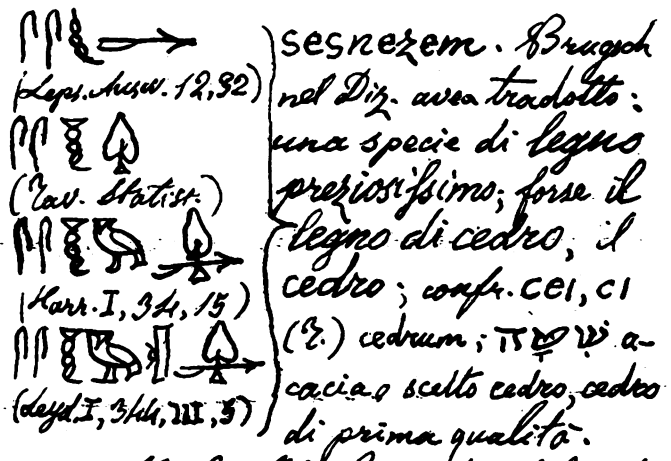 (Leps. Ausw. 12,32)
(Tav. Statist.)
(Harr. I, 34, 15)
(Leyd. I, 344, III, 5)
sesnezem. Brugsch
nel Diz. avea tradotto:
una specie di legno
preziosissimo; forse il
legno di cedro, il
cedro; confr. ϲⲉⲓ, ϲⲓ
(T.) cedrum; שטה a-
cacia, o scelto cedro, cedro
di prima qualità.